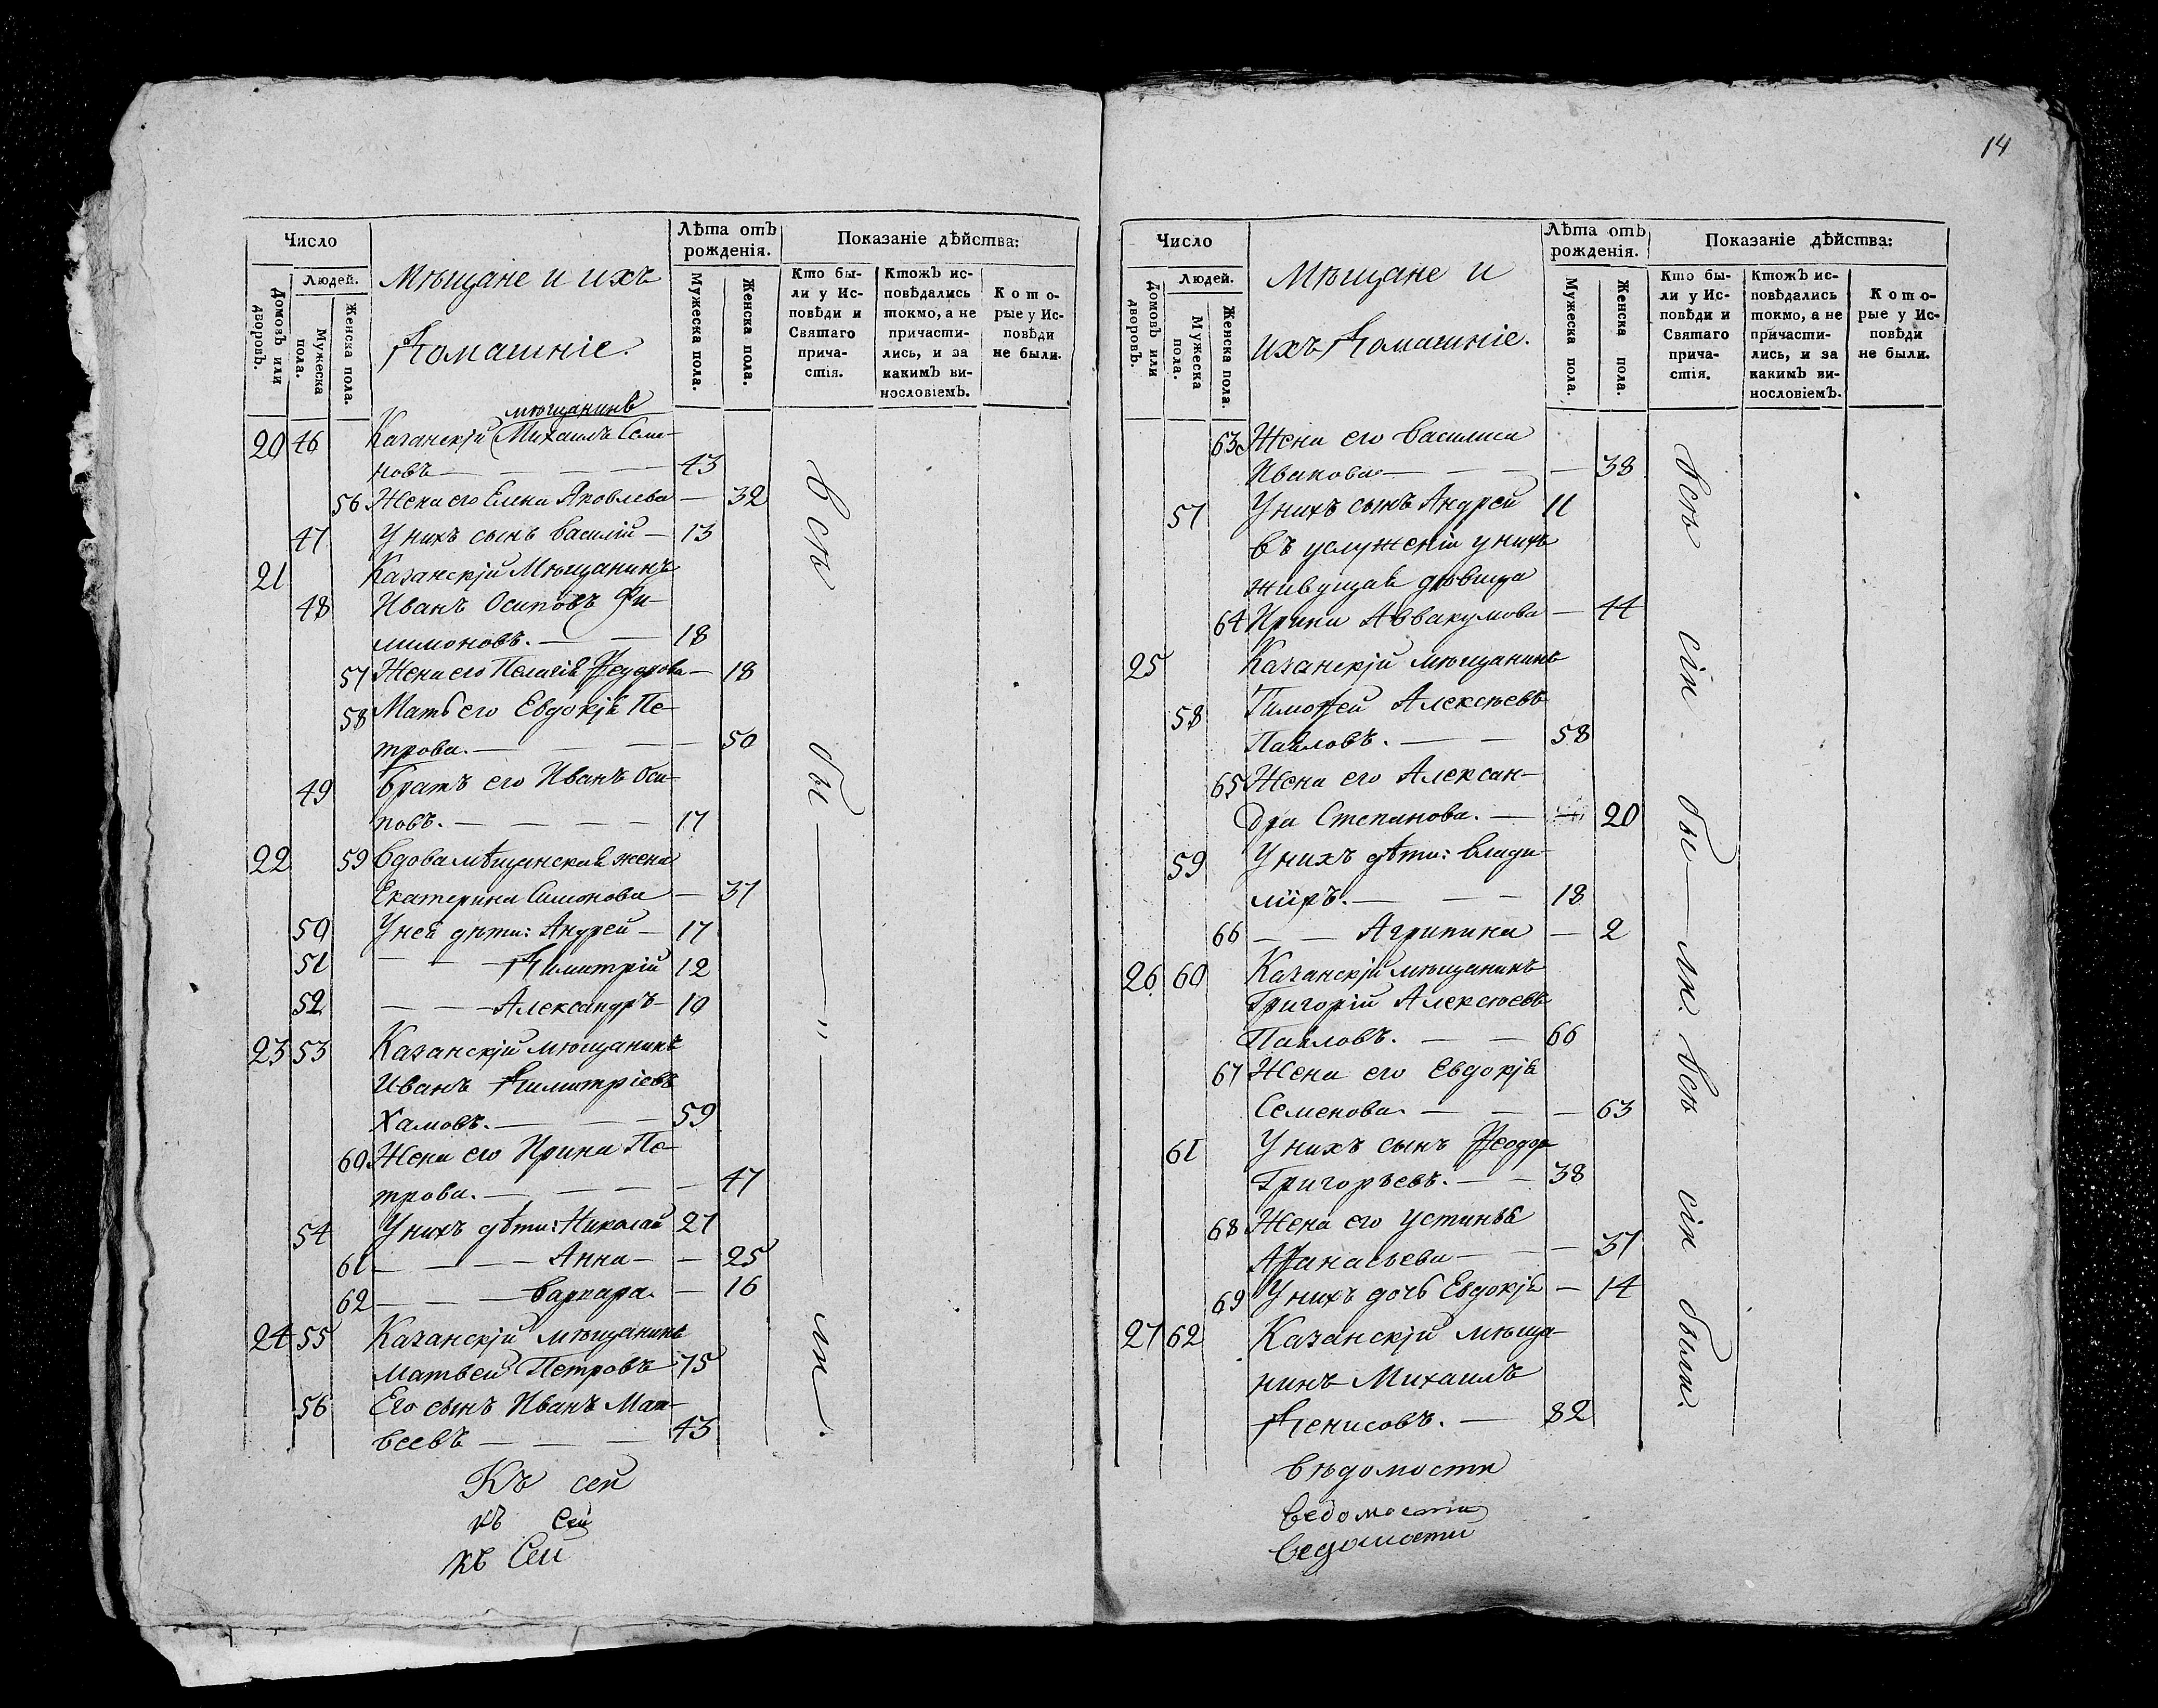 14
Число
Лѣта отъ рожденія.
Показаніе дѣйства:
Домовъ или дворовъ.
Людей.
Мужеска пола.
Женска пола.
Мѣщане и ихъ
Домашніе.
Мужеска пола.
Женска пола.
Кто были у Исповѣди и Святаго причастія.
Ктожъ исповѣдались токмо, а не причастились, и за какимъ винословіемъ.
Которые у Исповѣди не были.
мѣщанинъ
20 46 Казанскій Михаилъ Семе-
новъ — 43
56 Жена его Елена Яковлева — 32
47 У нихъ сынъ Василій — 13
21 Казанскій Мѣщанинъ
48 Иванъ Осиповъ Фи-
лимоновъ. — 18
57 Жена его Пелагія Ѳедорова — 18
58 Мать его Евдокія Пе-
трова. — 50
49 Братъ его Иванъ Оси-
повъ. — 17
22 59 Вдова мѣщанская жена
Екатерина Симонова — 37
50 У нея дѣти: Андрей — 17
51 — — Димитрій 12
52 — — Александръ — 10
23 53 Казанскій мѣщанинъ
Иванъ Димитріевъ
Хамовъ. — 59
60 Жена его Ирина Пе-
трова. — 47
54 У нихъ дѣти: Николай 27
61 — — — Анна — — 25
62 — — — Варвара. — 16
24 55 Казанскій мѣщанинъ
Матвей Петровъ 75
56 Его сынъ Иванъ Мат-
веевъ — 43
всѣ бы — " — ли.
Къ сей
къ Сей
къ Сей
Число
Лѣта отъ рожденія.
Показаніе дѣйства:
Домовъ или дворовъ.
Людей.
Мужеска пола.
Женска пола.
Мѣщане и
ихъ Домашніе.
Мужеска пола.
Женска пола.
Кто были у Исповѣди и Святаго причастія.
Ктожъ исповѣдались токмо, а не причастились, и за какимъ винословіемъ.
Которые у Исповѣди не были.
63 Жена его Василиса
Иванова — 38
57 У нихъ сынъ Андрей 11
въ услуженіи у нихъ
живущая дѣвица
64 Ирина Аввакумова — 44
25 Казанскій мѣщанинъ
58 Тимоѳей Алексѣевъ
Павловъ. — 58
65 Жена его Алексан-
дра Степанова. — 20
59 У нихъ дѣти: Влади-
міръ. — 18
66 — — Агрипина — 2
26 60 Казанскій мѣщанинъ
Григорій Алексѣевъ
Павловъ. — 66
67 Жена его Евдокія
Семенова. — 63
61 У нихъ сынъ Ѳеодор
Григорьевъ. — 38
68 Жена его Устинья
Аѳанасьева — 37
69 У нихъ дочь Евдокія — 14
27 62 Казанскій мѣща-
нинъ Михаилъ
Денисовъ. — 82
всѣ сіи бы — ли. всѣ сіи были.
вѣдомости
ведомости
ведомости